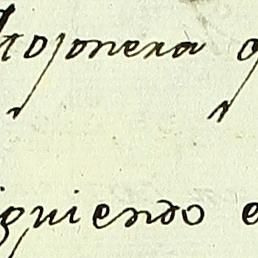 tojonera q
iguiendo e